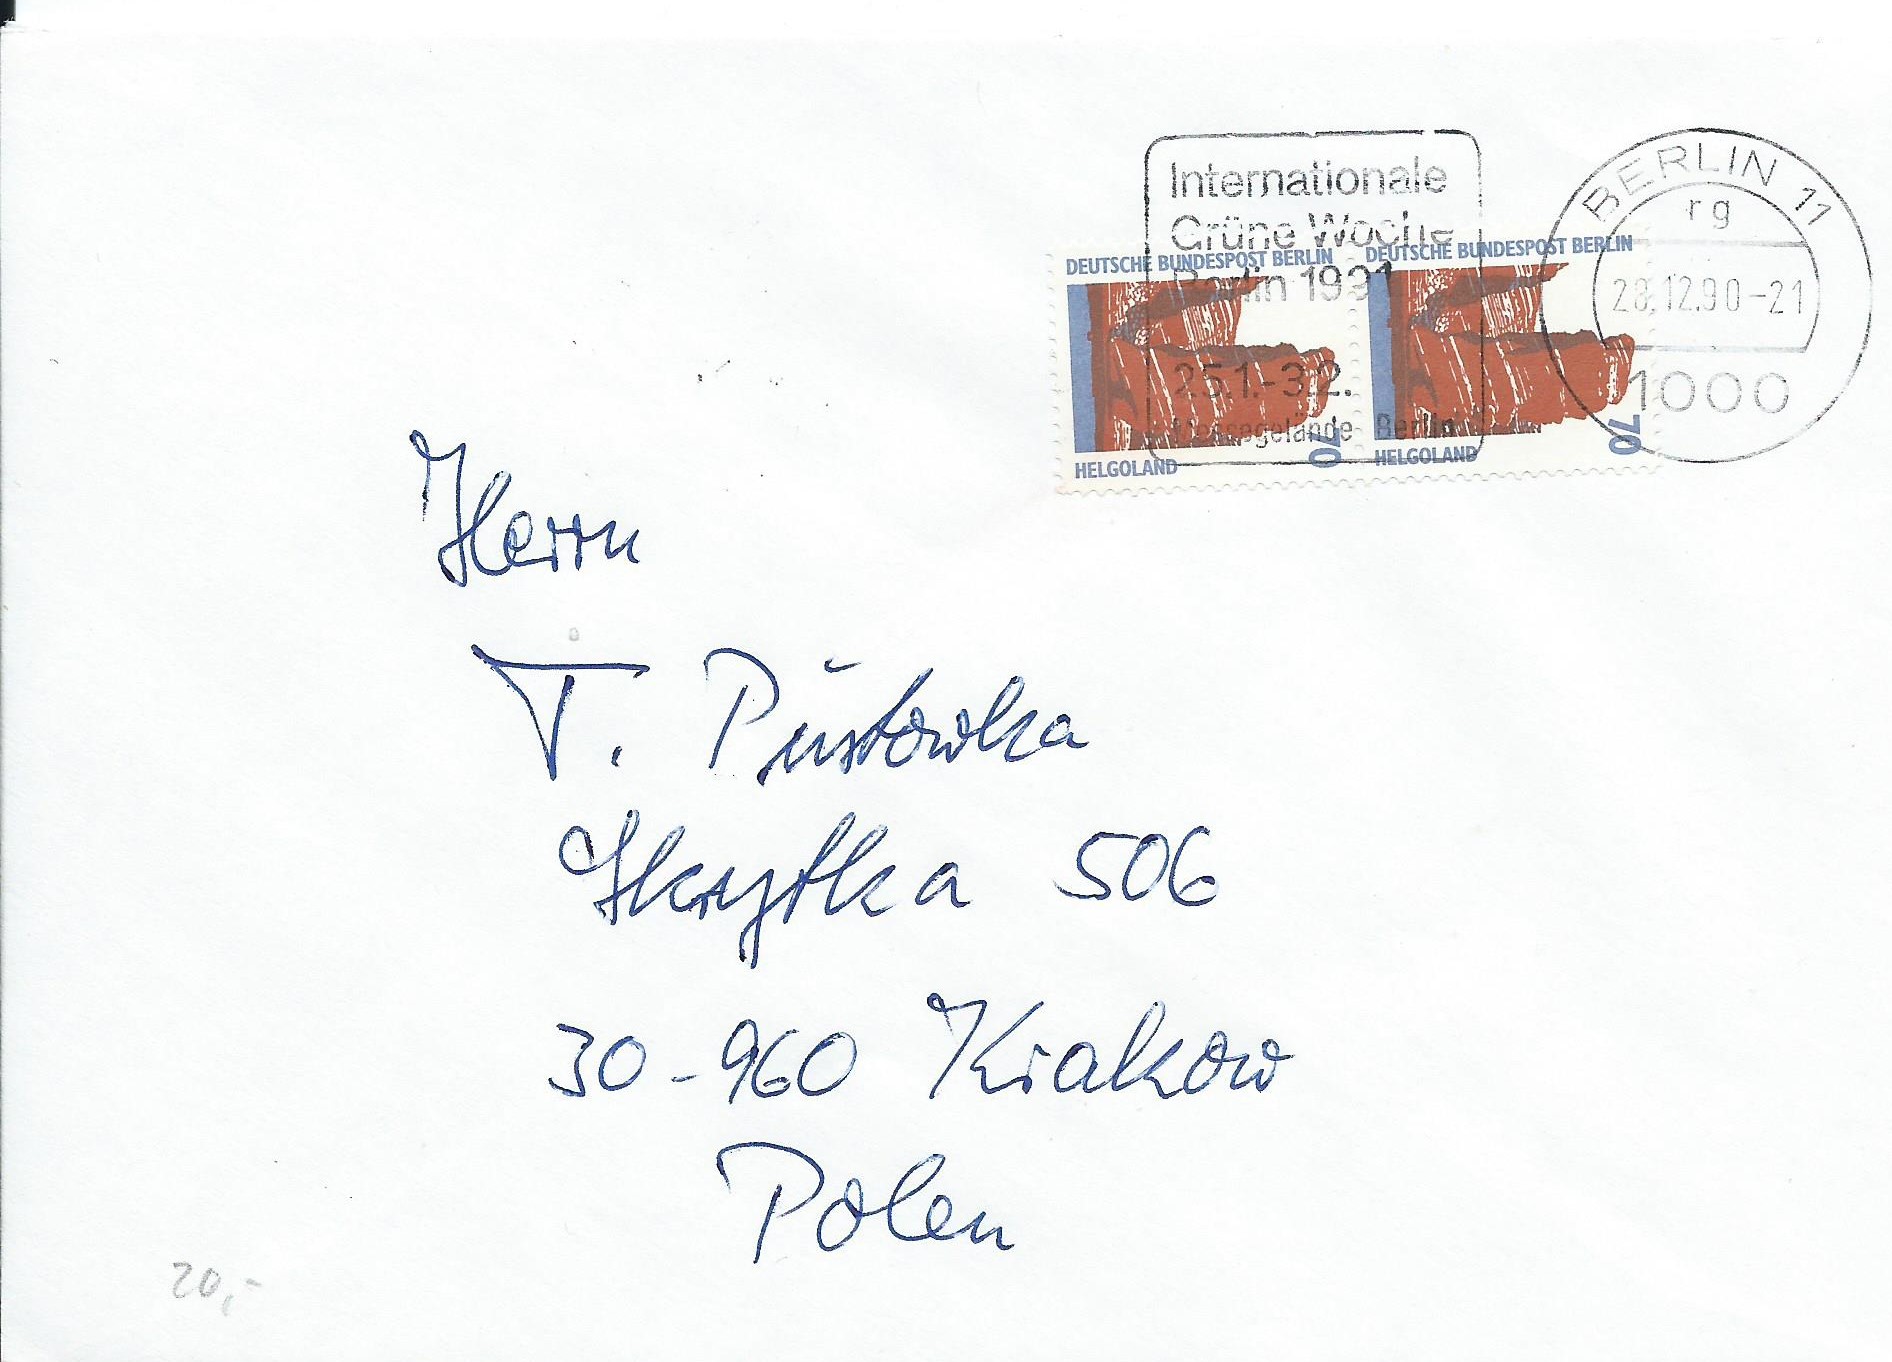 Internationale
Grüne Woche
Berlin 1991
25.1.-3.2.
Messegelände Berlin
BERLIN 11
rg
28.12.90-21
1000
DEUTSCHE BUNDESPOST BERLIN
70
HELGOLAND
DEUTSCHE BUNDESPOST BERLIN
70
HELGOLAND
Herrn
T. Pustowka
Skrytka 506
30-960 Krakow
Polen
20,-